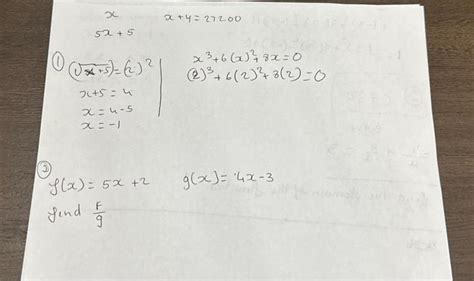 x x+y=27200
5x+5
① (√x+5)=(2)²
x+5=4
x=4-5
x=-1
x³+6(x)²+8x=0
(2)³+6(2)²+8(2)=0
②
f(x)=5x+2 g(x)=4x-3
find F/g